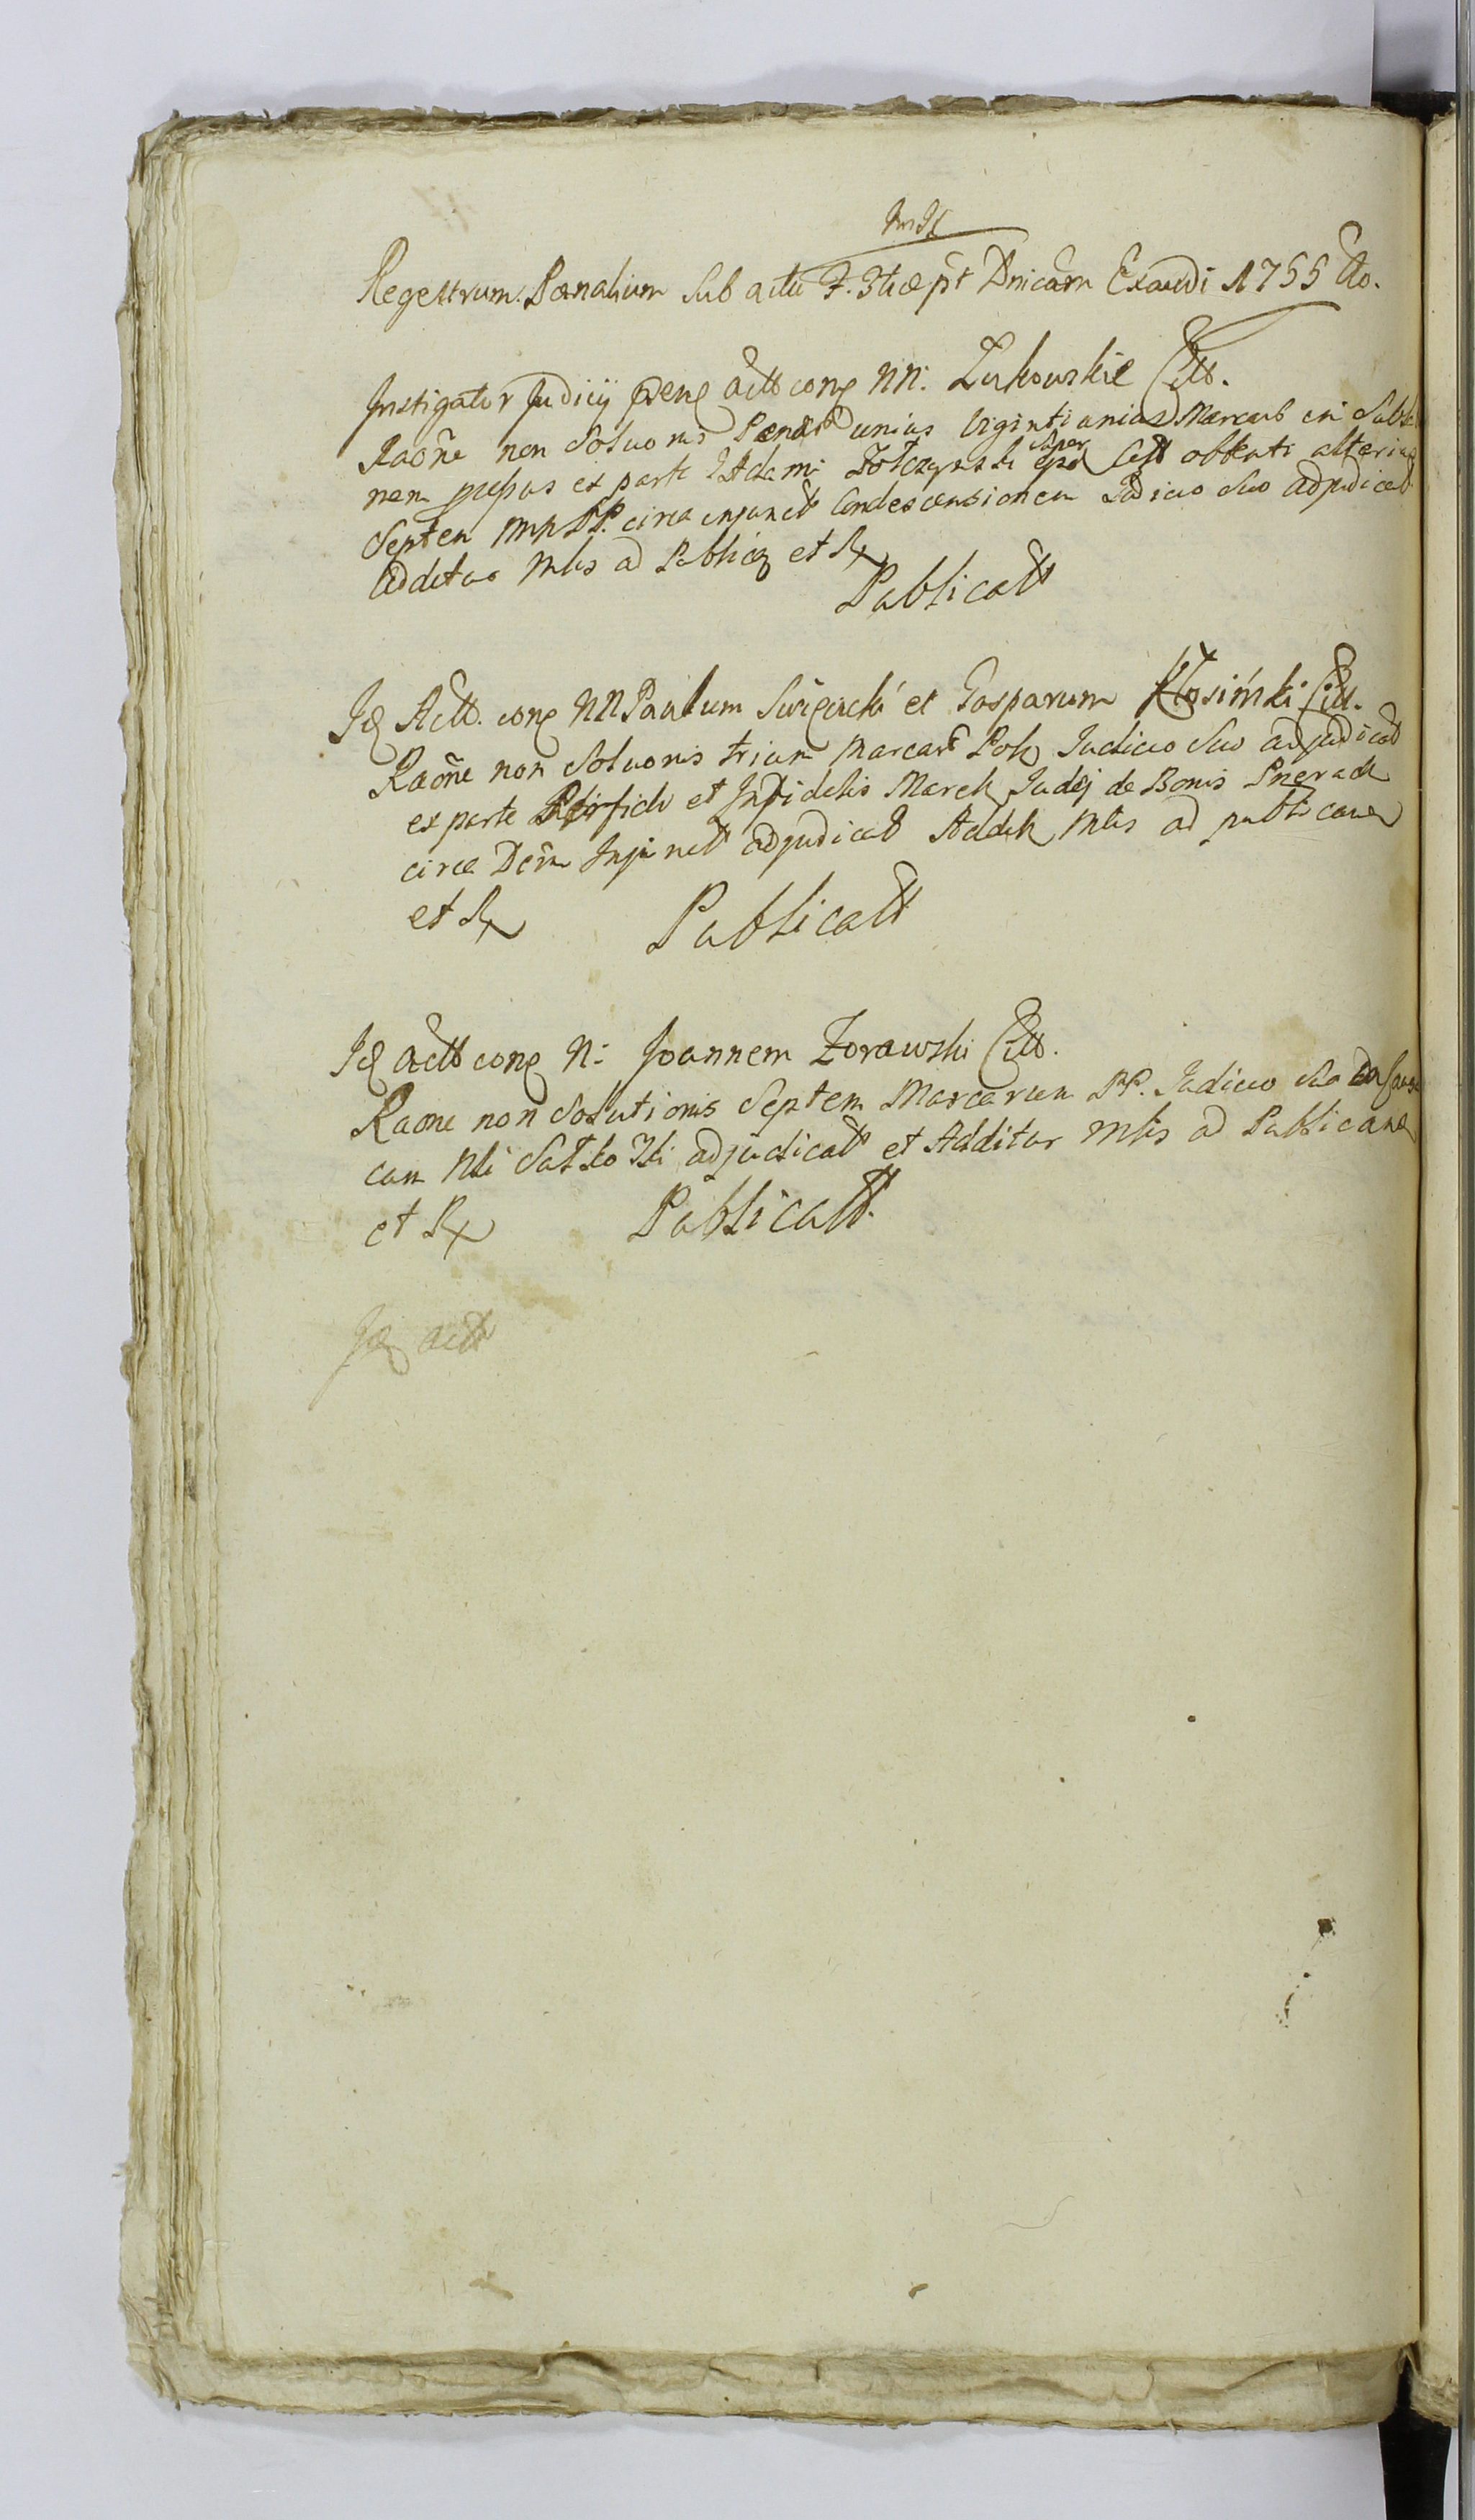 Regestrum Pœnalium Sub actu F. 3tiæ pt Dnicam Exaudi 1755 Ao.
Instigator Judicij pseng Actt cong NN. Zukowskie Citt.
Raõne non Soluonis Pœnar unius Viginti unius Marcarum in
nem ex parte Adami Zołczynski super ipso Citt obtenti alterius
Septem Mrh PP. circa injunct Condescensionem Judicio Suo adjudicat
Additur Mlis ad Publicq et Rx
Publicatt
Id Actt. cong NN Paulum et Gasparum Kłosiński Citt.
Raõne non Soluonis trium Marcar Polq Judicio Suo adjudicat
ex parte et Infidelis Marek Judej de Bonis
circa Injunct adjudicat Addit Mlis ad publicand
et Rx Publicatt
Id actt cong N. Joannem Zorawski Citt.
Raone non Solutionis Septem Marcarum PP. Judicio Suo
cum Nli adjudicat et Additur Mlis ad Publicand
et Rx Publicatt.
Id actt